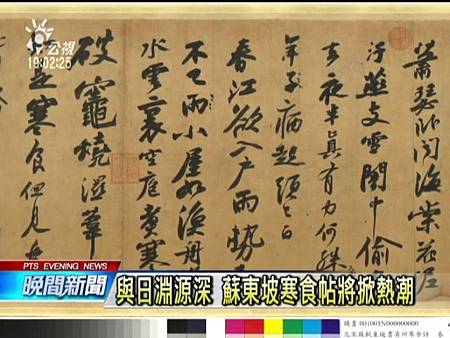 公視
19:02:25
蕭瑟臥聞海棠花泥
汙燕支雪闇中偷
去夜半真有力何殊
年子病起頭已白
春江欲入戶雨勢
不已雨小屋如漁舟
水雲裏空庖煮寒
破竈燒濕葦
是寒食但見
PTS EVENING NEWS
晚間新聞
與日淵源深 蘇東坡寒食帖將掀熱潮